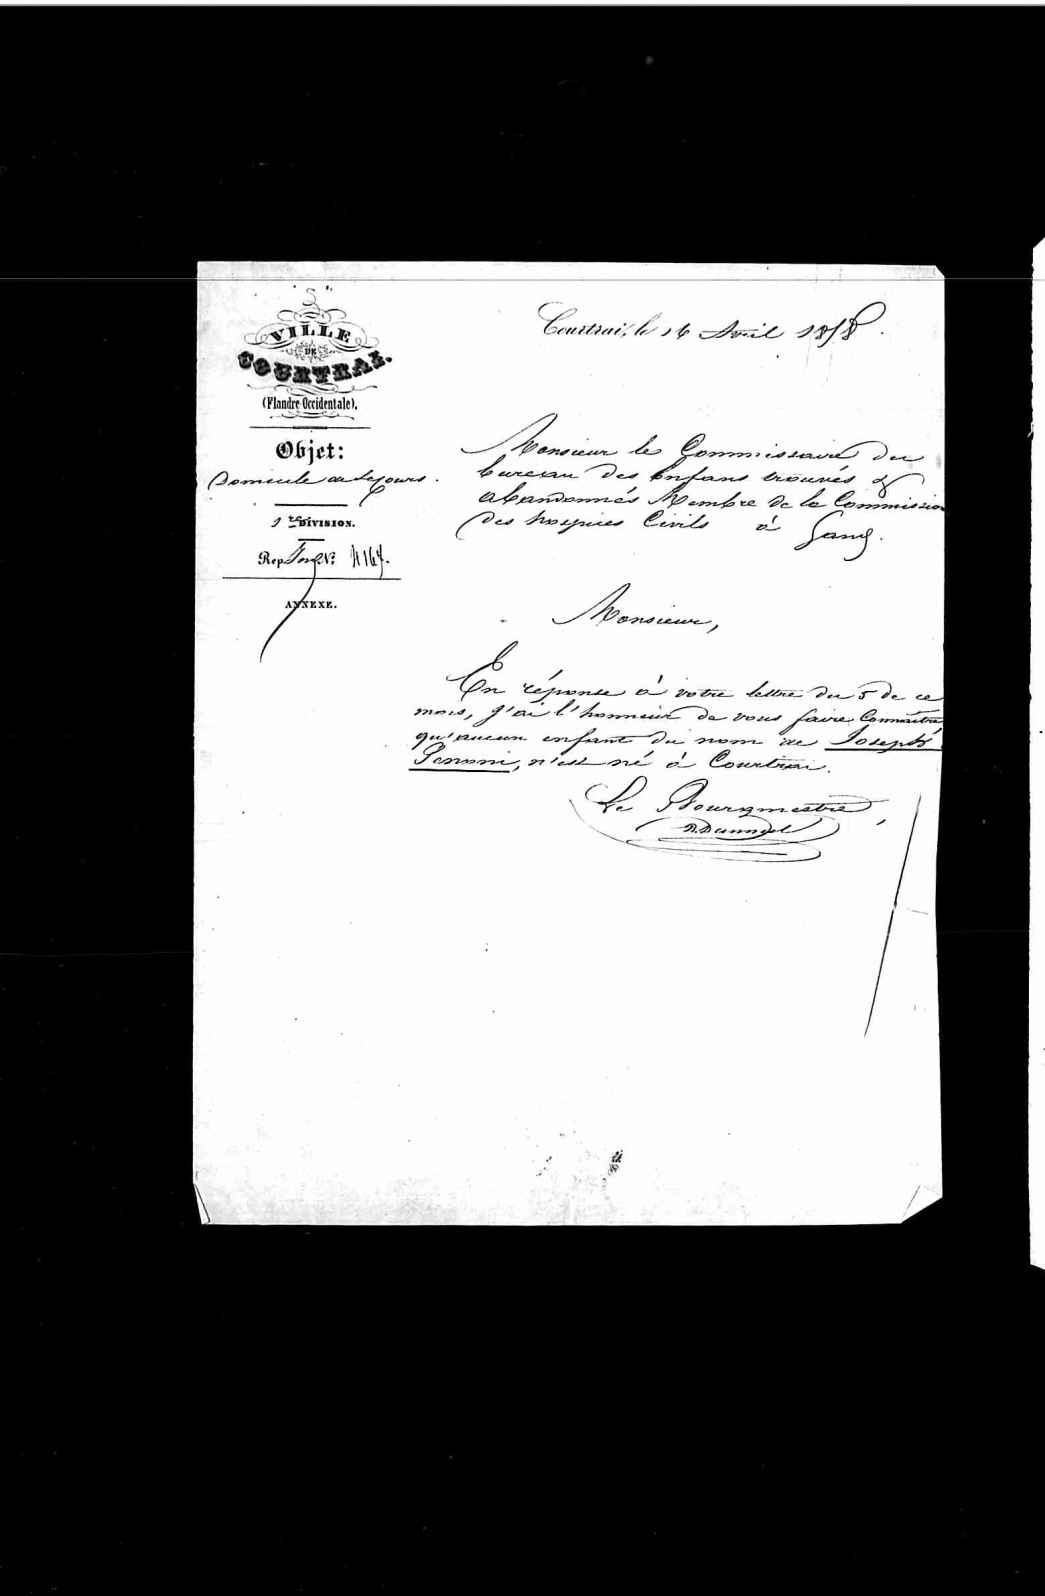 VILLE
DE
COURTRAI.
(Flandre Occidentale).
Objet:
Domicile de secours.
1re DIVISION.
Rep. No
ANNEXE.
Courtrai, le 16 Avril 1858.
Monsieur le Commissaire du
bureau des Enfans trouvés &
abandonnés Membre de la Commission
des hospices Civils à Gand.
Monsieur,
En réponse à votre lettre du 5 de ce
mois, j'ai l'honneur de vous faire Connaître
qu'aucun enfant du nom de Joseph
n'est né à Courtrai.
Le Bourgmestre,